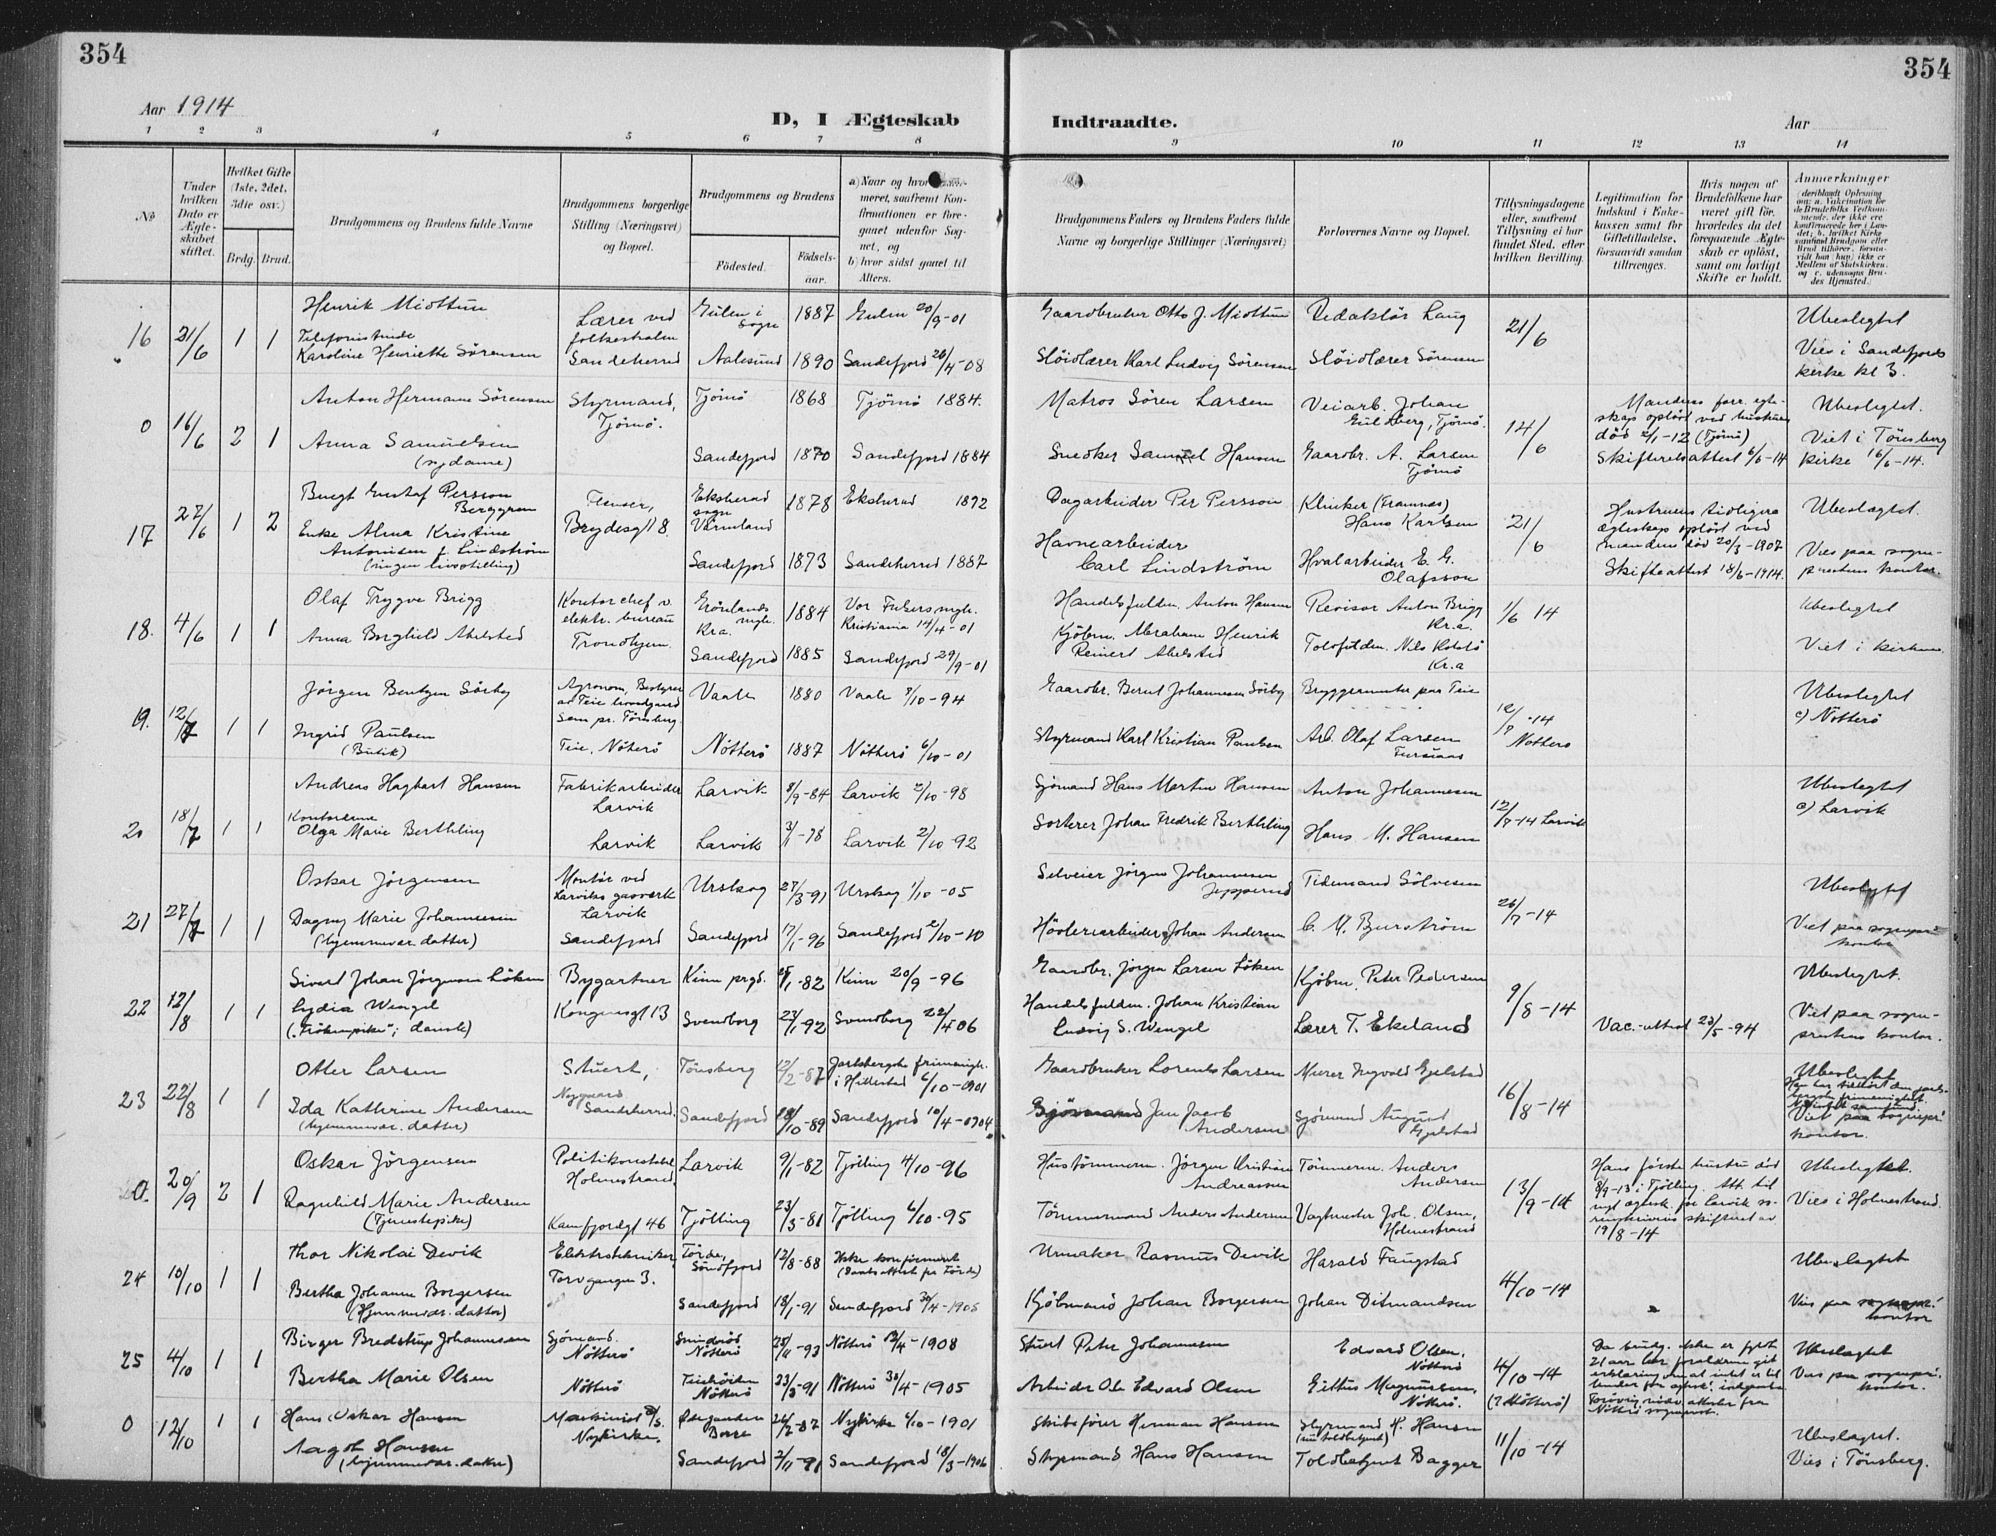 354
354
Aar 1914
D, I Ægteskab Indtraadte.
Aar
1 2 3 4 5 6 7 8 9 10 11 12 13 14
No
Under hvilken Dato er Ægteskabet stiftet.
Hvilket Gifte (1ste, 2det, 3die osv.)
Brdg. Brud.
Brudgommens og Brudens fulde Navne
Brudgommens borgerlige Stilling (Næringsvei) og Bopæl.
Brudgommens og Brudens
Fødested. Fødselsaar.
b) hvor sidst gaaet til Alters.
Brudgommens Faders og Brudens Faders fulde Navne og borgerlige Stillinger (Næringsvei)
Forlovernes Navne og Bopæl.
Tillysningsdagene eller, saafremt Tillysning ei har fundet Sted, efter hvilken Bevilling.
Legitimation for Indskud i Enkekassen samt for Giftetilladelse, forsaavidt saadan tiltrænges.
Hvis nogen af Brudefolkene har været gift før, hvorledes da det foregaaende Ægteskab er opløst, samt om lovligt Skifte er holdt.
Anmerkninger
16 21/6 1 1
Henrik Miøttun
Lærer ved folkeskolen Sandeherred
Gulen i Sogn 1887 Gulen 20/9-01
Gaardbruker Otto J. Miøttun
Redaktør Laug
21/6
Ubeslegtet
Telefonistinde
Karoline Henriette Sørensen
Aalesund 1890 Sandefjord 26/4-08
Sløidlærer Karl Ludvig Sørensen
Sløidlærer Sørensen
Vies i Sandefjords kirke kl 3.
0 16/6 2 1
Anton Hermann Sørensen
Styrmand, Tjømø.
Tjømø 1868 Tjømø 1884.
Matros Søren Larsen
Veiarb. Johan Guldberg, Tjømø.
14/6
død 2/1-12 (Tjømø)
Ubeslegtet.
Anna Samuelsen
(sydame)
Sandefjord 1870 Sandefjord 1884
Snedker Samuel Hansen
Gaardbr. A. Larsen Tjømø
Skifteretsattest 6/6-14
Viet i Tønsberg kirke 16/6-14.
17 27/6 1 2
Bengt Gustaf Persson Berggren
Flenser, Brydesgt 8
Eksherad sogn Värmland 1878 Eksherad 1892
Dagarbeider Per Persson
Klinker (Framnæs) Hans Karlsen
21/6
Hustruens tidligere ægteskap opløst ved mandens død 20/3-1907
Skifteattest 18/6-1914.
Ubeslegtet.
Enke Alma Kristine Antonisen f. Lindström
(ingen livsstilling)
Sandefjord 1873 Sandeherred 1887
Havnearbeider Carl Lindström
Hvalarbeider E. G. Olafsson
Vies paa sogneprestens kontor.
18. 4/6 1 1
Olaf Trygve Brigg
Kontorchef v. elektr. bureau Trondhjem.
Grønlands mgh. Kra. 1884 Vor Frelsers mgh. Kristiania 14/4-01
Handelsfuldm. Anton Hansen
Revisor Anton Brigg Kr.a.
1/6 14
Ubeslegtet
Anna Borghild Abelsted
Sandefjord 1885 Sandefjord 29/9-01
Kjøbm. Abraham Henrik Reinert Abelsted
Kr.a
Viet i kirken.
19. 12/7 1 1
Jørgen Bentzen Sørby
Vaale 1880 Vaale 9/10-94
Gaardbr. Bernt Johannesen Sørby
Bryggermester paa Teie
12/7-14 Nøtterø
Ubeslegtet
c) Nøtterø
Ingrid Paulsen
(Butik)
Teie, Nøterø
Nøtterø 1887 Nøtterø 6/10-01
Styrmand Karl Kristian Paulsen
Arb. Olaf Larsen
20 18/7 1 1
Andreas Hagbart Hansen
Fabrikarbeider Larvik
Larvik 8/9-84 Larvik 2/10-98
Sjømand Hans Martin Hansen
Anton Johannesen
12/7-14 Larvik
Ubeslegtet
c) Larvik
Kontordame
Olga Marie Berthling
Larvik
Larvik 3/1-78 Larvik 2/10-92
Sorterer Johan Fredrik Berthling
Hans M. Hansen
21 27/7 1 1
Oskar Jørgensen
Montør ved Larviks gasverk Larvik
Urskog 27/3-91 Urskog 1/10-05
Selveier Jørgen Johannesen
Tidemand Sølvesen
26/7-14
Ubeslegtet
Dagny Marie Johannessen
(hjemmevær. datter)
Sandefjord
Sandefjord 17/1-96 Sandefjord 2/10-10
Høvleriarbeider Johan Andersen
C. M. Burström
Viet paa sognepr. kontor
22 12/8 1 1
Sivert Johan Jørgensen Løken
Bygartner Kongensgt 13
Kinn prgd. 25/1-82 Kinn 20/9-96
Gaardbr. Jørgen Larsen Løken
Kjøbm. Peter Pedersen
9/8-14
Ubeslegtet.
Lydia Wengel
("Frøkenpike"; dansk)
Svendborg 23/1-92 Svendborg 22/4 06
Handelsfuldm. Johan Kristian Ludvig S. Wengel
Lærer T. Ekeland
Vac.-attest 23/5-94
Viet paa sogneprestens kontor.
23 22/8 1 1
Otter Larsen
Stuert, Nygaard Sandeherred.
Tønsberg 12/2-87 Jarlsbergske frimenigh. i Hillestad 6/10-1901
Gaardbruker Lorents Larsen
Murer Ingvald Gjelstad
16/8-14
Ubeslegtet
Ida Kathrine Andersen
(hjemmevær. datter)
Sandefjord 18/10-89 Sandefjord 10/4-1904
Jan Jacob Andersen
Sjømand August Gjelstad
Viet paa sognepr. kontor.
0. 20/9 2 1
Oskar Jørgensen
Politikonstabel Holmestrand
Larvik 9/1-82 Tjølling 4/10-96
Hustømmerm. Jørgen Kristian Andreassen
Tømmerm. Anders Andersen
13/9-14
Hans første hustru død 8/9-13 i Tjølling.
19/8-14
Ubeslegtet.
Ragnhild Marie Andersen
(Tjenestepike)
Kamfjordgt 46
Tjølling 23/3-81 Tjølling 6/10-95
Tømmermand Anders Andersen
Vagtmester Joh. Olsen, Holmestrand
Vies i Holmestrand.
24 10/10 1 1
Thor Nikolai Devik
Elektrotekniker, Torvgangen 3.
Førde, Søndfjord 12/8-88 Ikke konfirmert
Urmaker Rasmus Devik
Harald Faugstad
4/10-14
Ubeslegtet
Bertha Johanne Borgersen
(Hjemmevær. datter)
Sandefjord 18/1-91 Sandefjord 30/4-1905
Kjøbmand Johan Borgersen
Johan Ditmandsen
Vies paa sognepr. kontor
25 4/10 1 1
Birger Bredstrup Johannessen
Sjømand. Nøtterø
Smidsrød Nøtterø 25/11-93 Nøtterø 12/4-1908
Stuert Peter Johannessen
Edvard Olsen, Nøtterø
4/10-14
(? Nøtterø)
Ubeslegtet
Bertha Marie Olsen
Nøtterø
Nøtterø 23/3-91 Nøtterø 30/4-1905
Arbeider Ole Edvard Olsen
Gittus Magnussen, Nøtterø.
Vies paa sognepr. kontor.
0 12/10 1 1
Hans Oskar Hansen
Maskinist Nykirke.
Borre 26/2-87 Nykirke 6/10-1901
Skibsfører Herman Hansen
Styrmand H. Hansen
11/10-14
Ubeslegtet.
Aagot Hansen
(hjemmevær. datter)
Sandefjord 2/11-91 Sandefjord 18/3-1906
Styrmand Hans Hansen
Toldbetjent Bagger
Vies i Tønsberg.